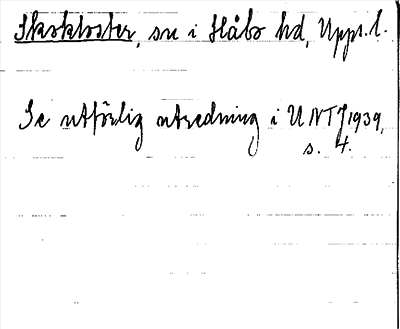 Skokloster, sn i Håbo hd, Upps. l.
Se utförlig utredning i UNT 7/1939,
s. 4.